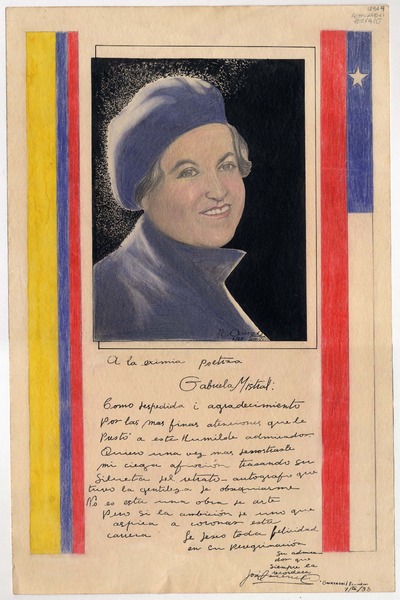 A la eximia poetiza
Gabriela Mistral:
Como despedida i agradecimiento
por las mas finas atenciones que le
Prestó a este Humilde admirador.
Quiero una vez mas demostrarle
mi ciega afición trasando su
Silencia del retrato autografo que
tuvo la gentileza de obsequiarme
No es esta una obra de arte
Pero si la ambición de uno que
aspira a coronar esta
carrera Le deseo toda felicidad
en su Peregrinación
Su admira-
dor que
siempre la
recordara